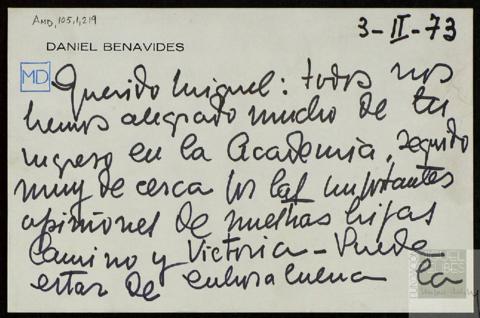 AMD, 105,1,219
3-II-73
DANIEL BENAVIDES
MD
Querido Miguel: todos nos
hemos alegrado mucho de tu
ingreso en la Academia, seguido
muy de cerca por las importantes
opiniones de nuestras hijas
Camino y Victoria - Puede
estar de enhorabuena
la